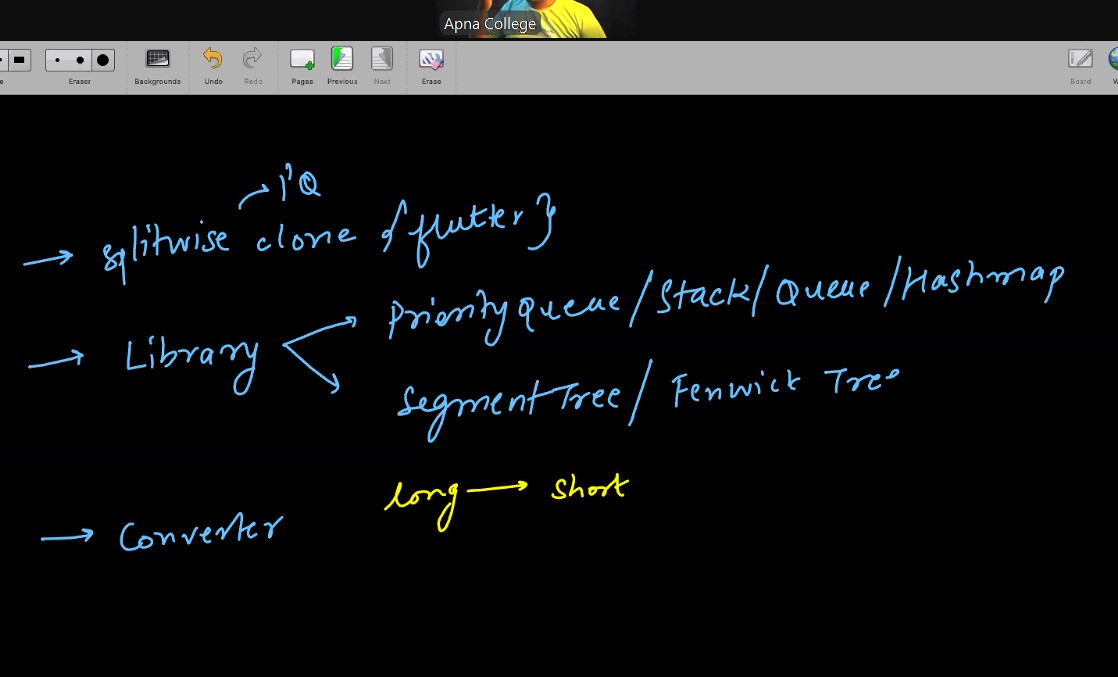 Apna College
Eraser Backgrounds Undo Redo Pages Previous Next Erase Board
PQ
→ splitwise clone {flutter}
→ Library → Priority queue / Stack / Queue / Hashmap
→ Segment Tree / Fenwick Tree
long → short
→ Converter